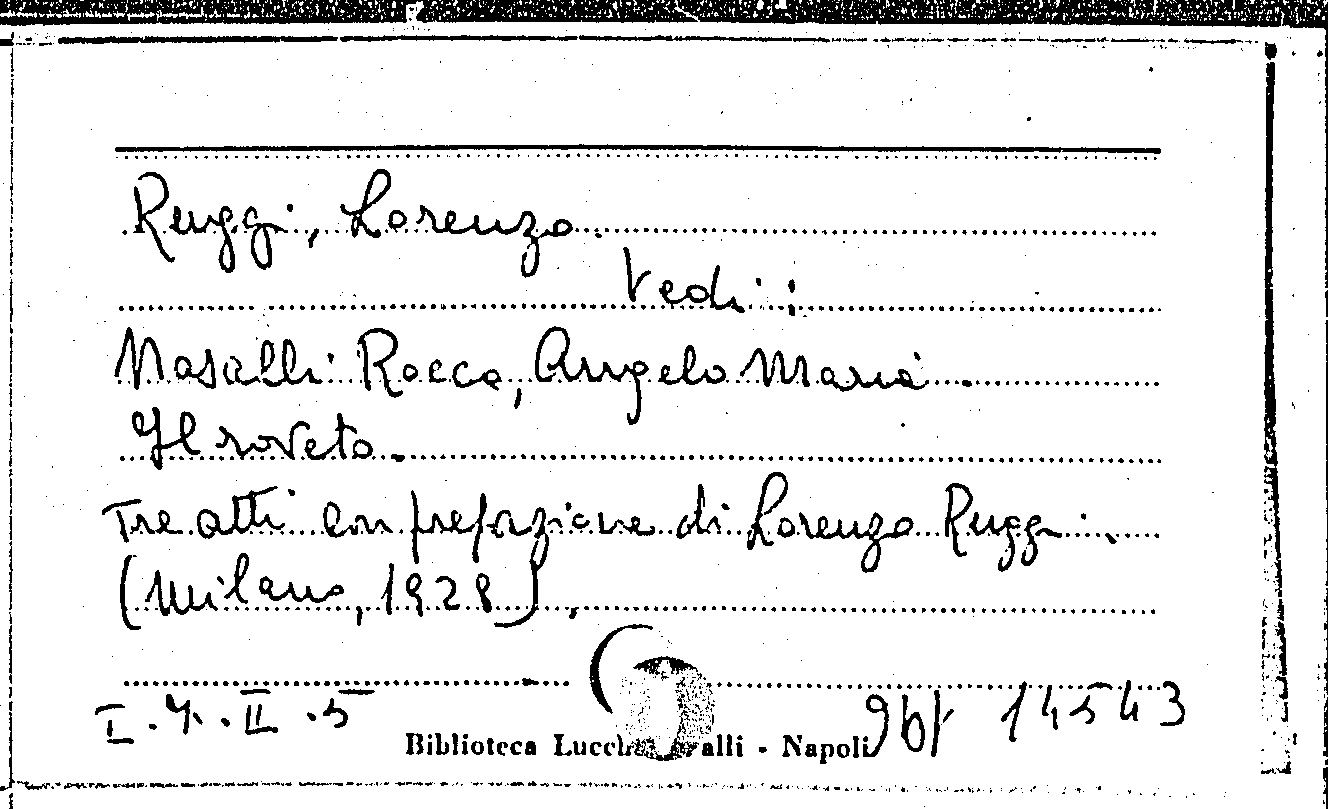 Ruggi, Lorenzo.
Vedi:
Nasalli Rocca, Angelo Maria.
Il roveto.
Tre atti con prefazione di Lorenzo Ruggi.
(Milano, 1928).
I.4.II.5
14543
Biblioteca - Napoli